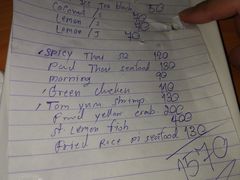 Ice Tea black 50
Coconut 70
Lemon /s 70
Lemon /s 70
SPICY Thai 52 120
Pad Thai seafood 130
morning 90
Green chicken 110
Tom yum shrimp 130
fried yellow crab 200
st Lemon fish 400
fried Rice or seafood 130
1570